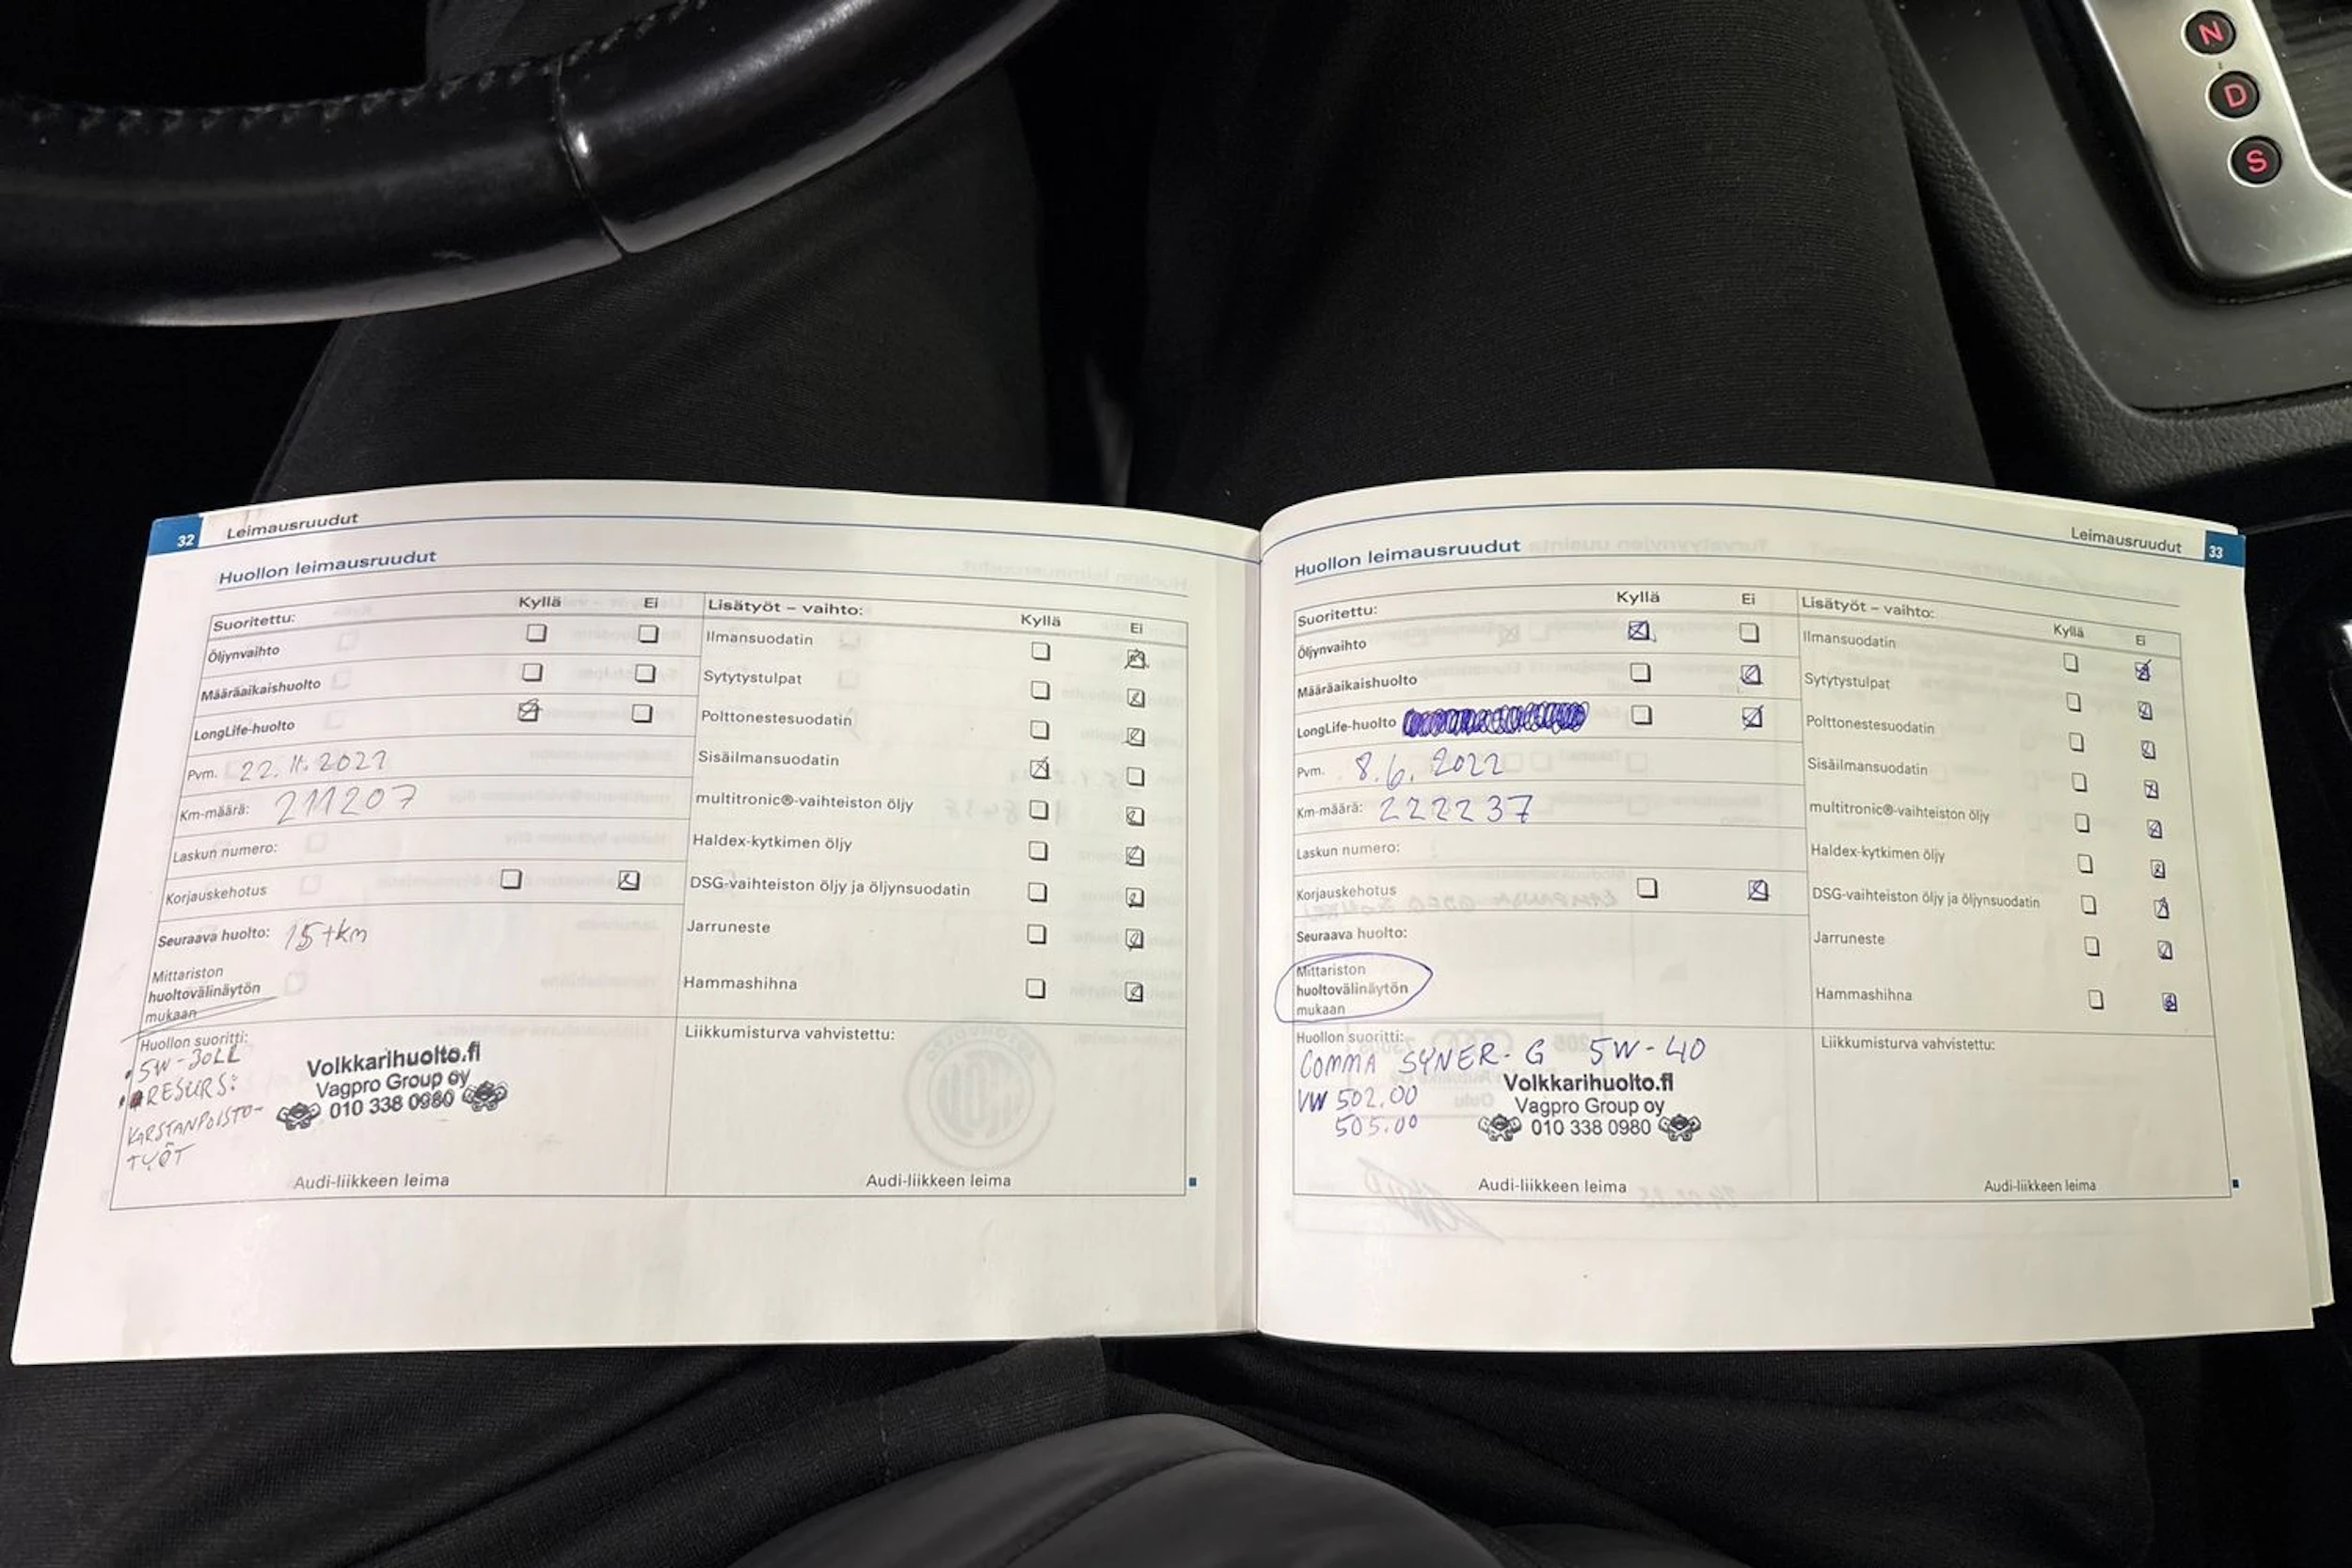 N
D
S
32 Leimausruudut
Huollon leimausruudut
Suoritettu: Kyllä Ei
Öljynvaihto
Määräaikaishuolto
LongLife-huolto
Pvm. 22.11.2021
Km-määrä: 211207
Laskun numero:
Korjauskehotus
Seuraava huolto: 15tkm
Mittariston
huoltovälinäytön
mukaan
Huollon suoritti:
5W-30LL
RESURS:
KARSTANPOISTO-
TYÖT
Volkkarihuolto.fi
Vagpro Group oy
010 338 0980
Audi-liikkeen leima
Lisätyöt – vaihto: Kyllä Ei
Ilmansuodatin
Sytytystulpat
Polttonestesuodatin
Sisäilmansuodatin
multitronic®-vaihteiston öljy
Haldex-kytkimen öljy
DSG-vaihteiston öljy ja öljynsuodatin
Jarruneste
Hammashihna
Liikkumisturva vahvistettu:
Audi-liikkeen leima
Leimausruudut 33
Huollon leimausruudut
Suoritettu: Kyllä Ei
Öljynvaihto
Määräaikaishuolto
LongLife-huolto
Pvm. 8.6.2022
Km-määrä: 222237
Laskun numero:
Korjauskehotus
Seuraava huolto:
Mittariston
huoltovälinäytön
mukaan
Huollon suoritti:
COMMA SYNER-G 5W-40
VW 502.00
505.00
Volkkarihuolto.fi
Vagpro Group oy
010 338 0980
Audi-liikkeen leima
Lisätyöt – vaihto: Kyllä Ei
Ilmansuodatin
Sytytystulpat
Polttonestesuodatin
Sisäilmansuodatin
multitronic®-vaihteiston öljy
Haldex-kytkimen öljy
DSG-vaihteiston öljy ja öljynsuodatin
Jarruneste
Hammashihna
Liikkumisturva vahvistettu:
Audi-liikkeen leima